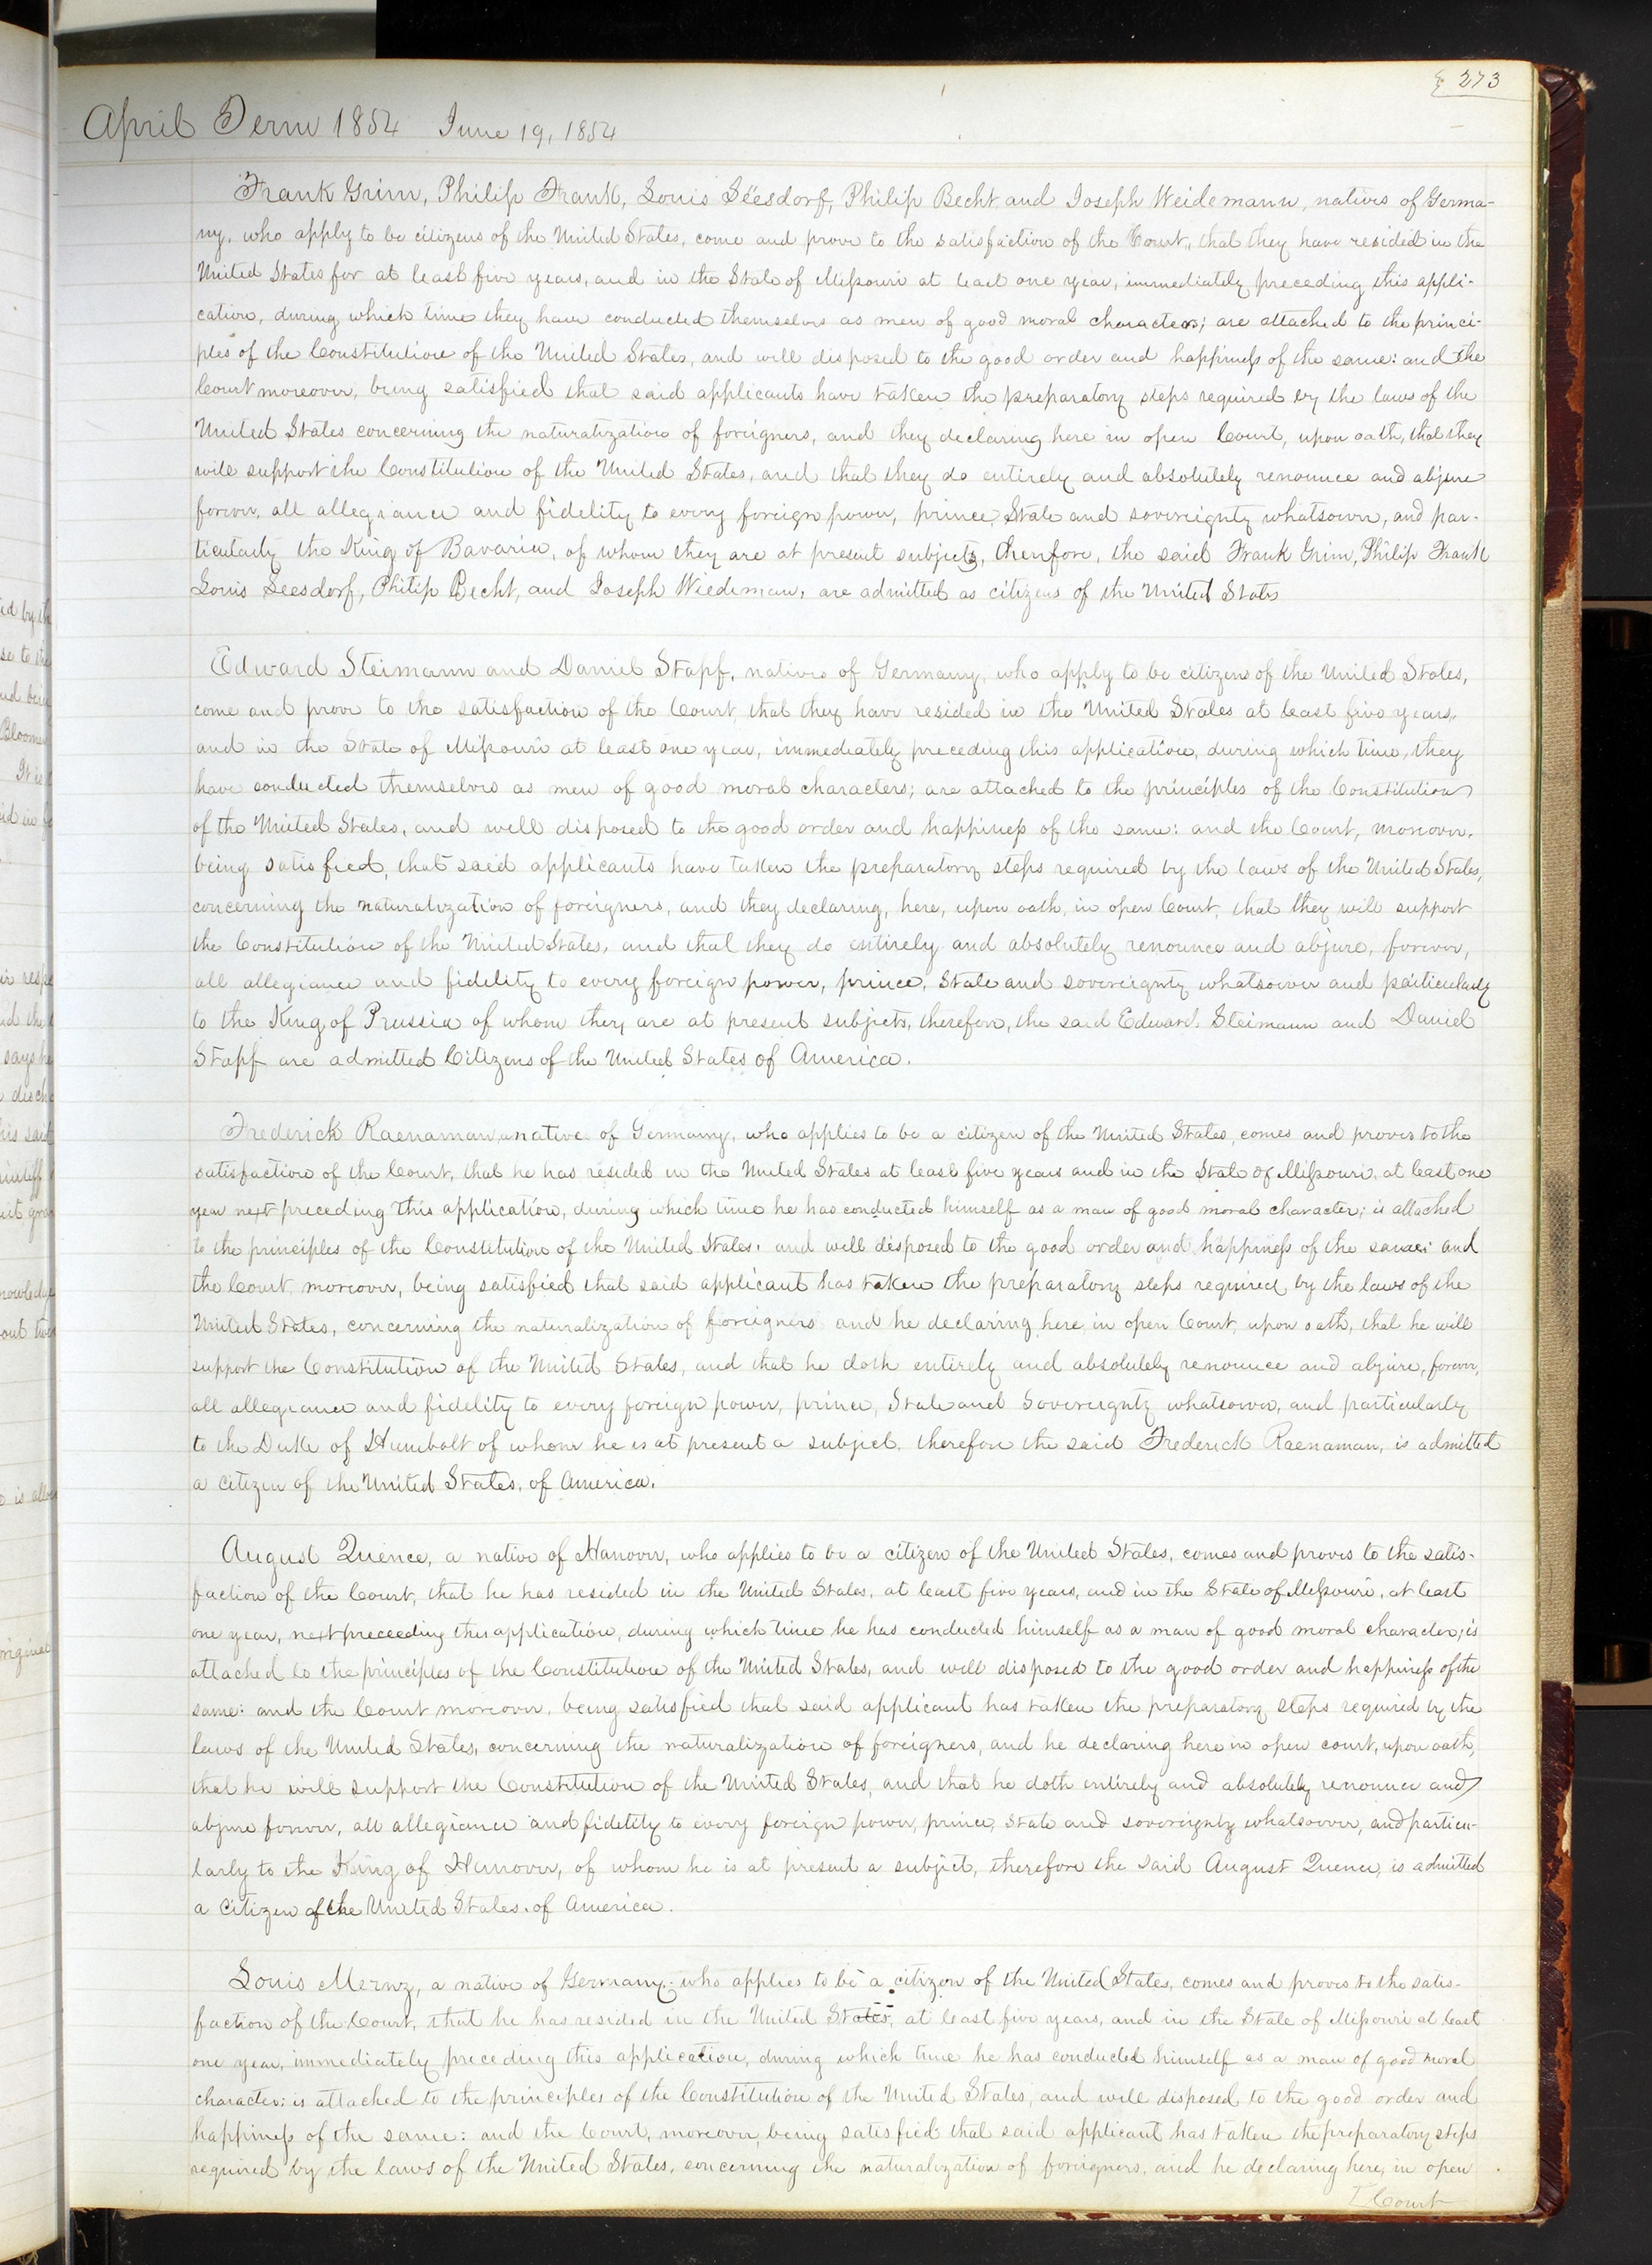 273
April Term 1854 June 19, 1854
Frank Grim, Philip Frank, Louis Seesdorf, Philip Becht, and Joseph Weidemann, natives of Germa-
ny, who apply to be citizens of the United States, come and prove to the satisfaction of the Court, that they have resided in the
United States for at least five years, and in the State of Missouri at least one year, immediately preceding this appli-
cation, during which time they have conducted themselves as men of good moral characters; are attached to the princi-
ples of the Constitution of the United States, and well disposed to the good order and happiness of the same: and the
Court moreover, being satisfied that said applicants have taken the preparatory steps required by the laws of the
United States concerning the naturalization of foreigners, and they declaring here in open Court, upon oath, that they
will support the Constitution of the United States, and that they do entirely and absolutely renounce and abjure
forever, all allegiance and fidelity to every foreign power, prince, State and sovereignty whatsoever, and par-
ticularly the King of Bavaria, of whom they are at present subjects, therefore, the said Frank Grim, Philip Frank
Louis Seesdorf, Philip Becht, and Joseph Wiedeman, are admitted as citizens of the United States
Edward Steimann and Daniel Stapf, natives of Germany, who apply to be citizens of the United States,
come and prove to the satisfaction of the Court, that they have resided in the United States at least five years,
and in the State of Missouri at least one year, immediately preceding this application, during which time, they
have conducted themselves as men of good moral characters; are attached to the principles of the Constitution
of the United States, and well disposed to the good order and happiness of the same: and the Court, moreover,
being satisfied, that said applicants have taken the preparatory steps required by the laws of the United States,
concerning the naturalization of foreigners, and they declaring, here, upon oath, in open Court, that they will support
the Constitution of the United States, and that they do entirely and absolutely renounce and abjure, forever,
all allegiance and fidelity to every foreign power, prince, State and sovereignty whatsoever and particularly
to the King of Prussia of whom they are at present subjects, therefore, the said Edward Steimann and Daniel
Stapf are admitted Citizens of the United States of America.
Frederick Raenaman, a native of Germany, who applies to be a citizen of the United States, comes and proves to the
satisfaction of the Court, that he has resided in the United States at least five years and in the State of Missouri, at least one
year next preceding this application, during which time he has conducted himself as a man of good moral character; is attached
to the principles of the Constitution of the United States, and well disposed to the good order and happiness of the same: and
the Court, moreover, being satisfied that said applicant has taken the preparatory steps required by the laws of the
United States, concerning the naturalization of foreigners and he declaring here in open Court, upon oath, that he will
support the Constitution of the United States, and that he doth entirely and absolutely renounce and abjure, forever,
all allegiance and fidelity to every foreign power, prince, State and Sovereignty whatsoever, and particularly
to the Duke of Humbolt of whom he is at present a subject, therefore the said Frederick Raenaman, is admitted
a citizen of the United States, of America.
August Quence, a native of Hanover, who applies to be a citizen of the United States, comes and proves to the satis-
faction of the Court, that he has resided in the United States, at least five years, and in the State of Missouri, at least
one year, next preceeding this application, during which time he has conducted himself as a man of good moral character; is
attached to the principles of the Constitution of the United States, and well disposed to the good order and happiness of the
same: and the Court moreover, being satisfied that said applicant has taken the preparatory steps required by the
laws of the United States, concerning the naturalization of foreigners, and he declaring here in open court, upon oath,
that he will support the Constitution of the United States, and that he doth entirely and absolutely renounce and
abjure forever, all allegiance and fidelity to every foreign power, prince, State and sovereignty whatsoever, and particu-
larly to the King of Hanover, of whom he is at present a subject, therefore the said August Quence, is admitted
a Citizen of the United States, of America.
Louis Mernz, a native of Germany, who applies to be a citizen of the United States, comes and proves to the satis-
faction of the Court, that he has resided in the United States, at least five years, and in the State of Missouri at least
one year, immediately preceding this application, during which time he has conducted himself as a man of good moral
character; is attached to the principles of the Constitution of the United States, and well disposed to the good order and
happiness of the same: and the Court, moreover, being satisfied that said applicant has taken the preparatory steps
required by the laws of the United States, concerning the naturalization of foreigners, and he declaring here, in open
Court